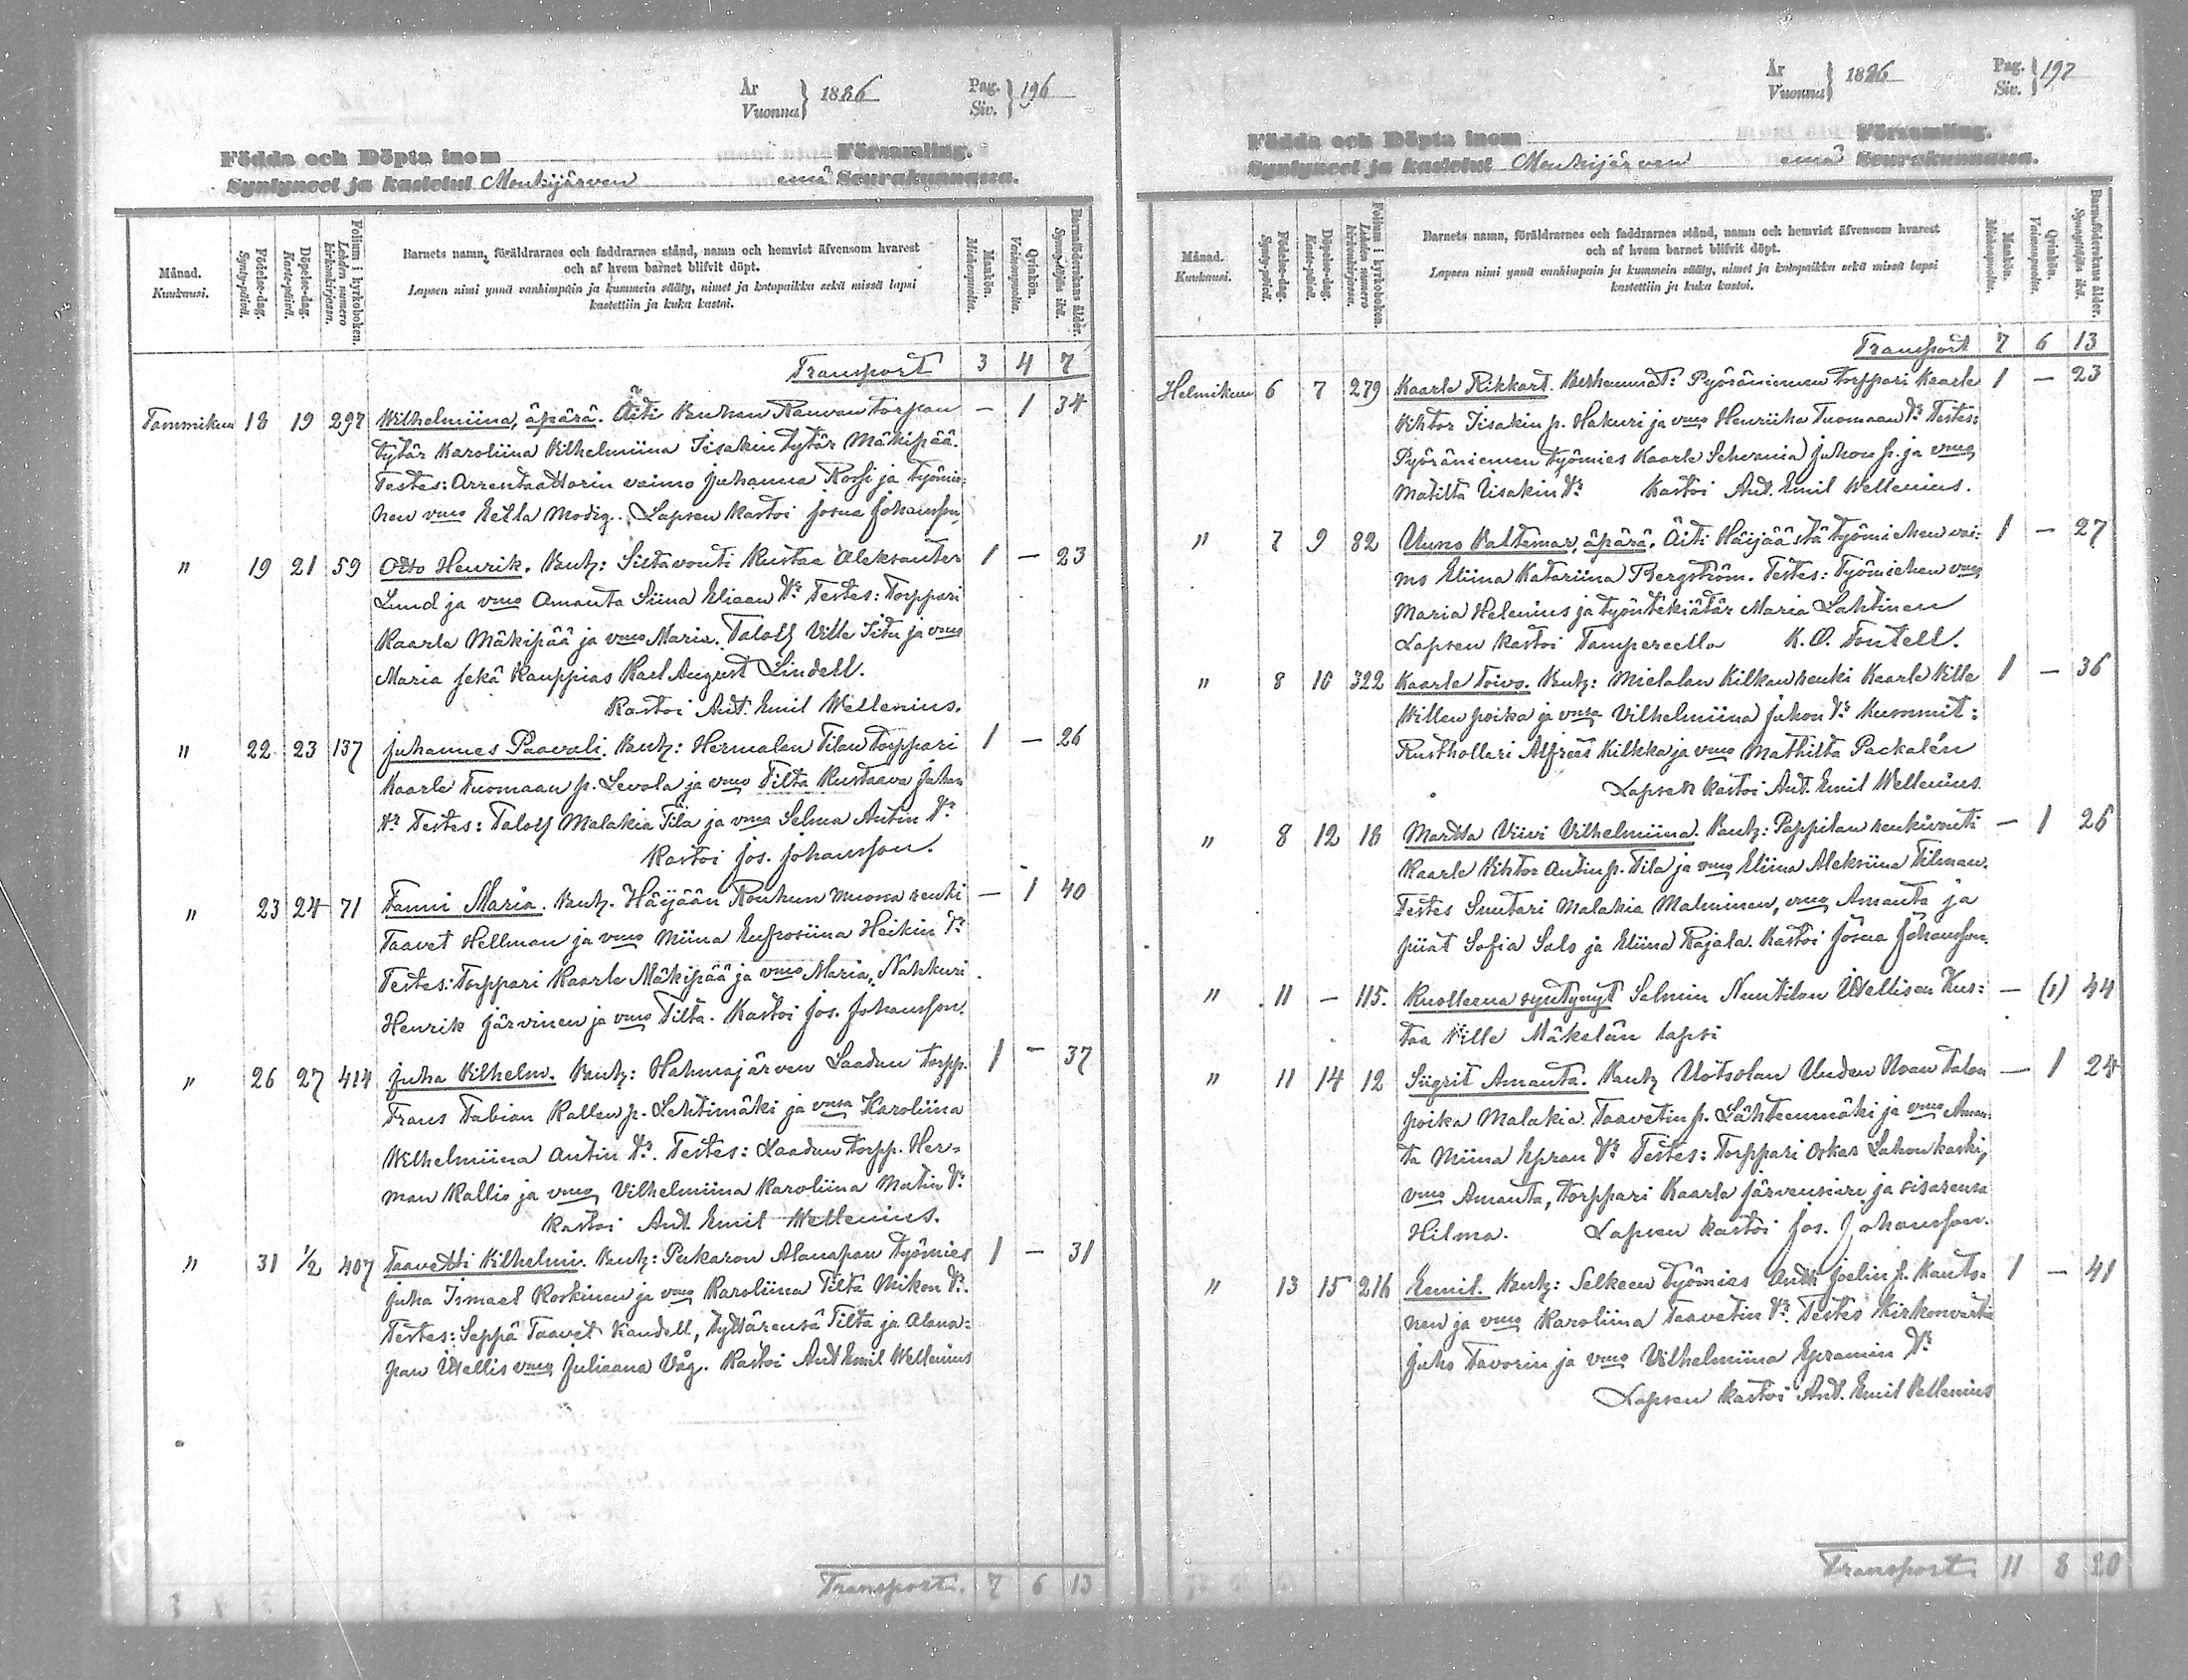 År
Vuonna } 1886 Pag.
Siv. } 196
Födda och Döpta inom Församling.
Syntyneet ja kastetut Mouhijärven emä Seurakunnassa.
Månad.
Kuukausi.
Födelse-dag.
Synty-päivä.
Döpelse-dag.
Kaste-päivä.
Folium i kyrkoboken.
Lehden numero kirkonkirjassa.
Barnets namn, föräldrarnes och faddrarnes stånd, namn och hemvist äfvensom hvarest
och af hvem barnet blifvit döpt.
Lapsen nimi ynnä vanhimpain ja kummein sääty, nimet ja kotopaikka sekä missä lapsi
kastettiin ja kuka kastoi.
Mankön.
Miehenpuolta.
Qvinkön.
Vaimonpuolta.
Barnaföderskans ålder.
Synnyttäjän ikä.
Transport 3 4 7
Tammikuu 18 19 297 Wilhelmiina, äpärä. Äiti Rauvan torpan — 1 34
tytär Karoliina Vilhelmiina Iisakin tytär Mäkipää.
Testes: Arrentaattorin vaimo Juhanna Rossi ja työmie-
hen vmo Eetla Modig. Lapsen kastoi Josua Johansson,
" 19 21 59 Otto Henrik. Vanh: Siltavouti Kustaa Aleksanter 1 — 23
Lund ja vmo Amanta Siina Eliaan tr. Testes: Torppari
Kaarle Mäkipää ja vmo Maria. Taloll Ville Iitu ja vmo
Maria sekä Kauppias Karl August Lindell.
Kastoi Ant. Emil Wellenius.
" 22 23 137 Juhannes Paavali. Vanh: Hermalan Tilan torppari 1 — 26
Kaarle Tuomaan p. Levola ja vmo Tilta Kustaava Juhan
tr. Testes: Taloll Malakia Tila ja vmo Selma Antin tr.
Kastoi Jos. Johansson.
" 23 24 71 Fanni Maria. Vanh. Häijään Rouhun muona renki — 1 40
Taavet Hellman ja vmo Miina Eufrosiina Heikin tr.
Testes: Torppari Kaarle Mäkipää ja vmo Maria, Nahkuri
Henrik Järvinen ja vmo Tilta. Kastoi Jos. Johansson.
" 26 27 414 Juha Vilhelm. Vanh: Hahmajärven Laadun torpp. 1 — 37
Frans Fabian Kallen p. Lehtimäki ja vmsa Karoliina
Wilhelmiina Antin tr. Testes: Laadun torpp. Her-
man Kallio ja vmo Vilhelmiina Karoliina Matin tr.
Kastoi Ant. Emil Wellenius.
" 31 1/2 407 Taavetti Vilhelmi. Vanh: Pukaron Alanapan työmies 1 — 31
Juha Ismael Koskinen ja vmo Karoliina Tilta Mikon tr.
Testes: Seppä Taavet Kandell, tyttärensä Tilta ja Alana-
pan Itsellis vmo Juliaana Våg. Kastoi Ant Emil Wellenius
Transport. 7 6 13
År
Vuonna } 1886 Pag.
Siv. } 197
Födda och Döpta inom Församling.
Syntyneet ja kastetut Mouhijärven emä Seurakunnassa.
Månad.
Kuukausi.
Födelse-dag.
Synty-päivä.
Döpelse-dag.
Kaste-päivä.
Folium i kyrkoboken.
Lehden numero kirkonkirjassa.
Barnets namn, föräldrarnes och faddrarnes stånd, namn och hemvist äfvensom hvarest
och af hvem barnet blifvit döpt.
Lapsen nimi ynnä vanhimpain ja kummein sääty, nimet ja kotopaikka sekä missä lapsi
kastettiin ja kuka kastoi.
Mankön.
Miehenpuolta.
Qvinkön.
Vaimonpuolta.
Barnaföderskans ålder.
Synnyttäjän ikä.
Transport 7 6 13
Helmikuu 6 7 279 Kaarle Rikkart. Vanhemmat: Pyöräniemen torppari Kaarle 1 — 23
Vihtor Iisakin p. Hakuri ja vmo Henriika Tuomaan tr. Testes:
Pyöräniemen työmies Kaarle Juhon p. ja vmo
Matilta Iisakin tr. Kastoi Ant. Emil Wellenius.
" 7 9 82 Uuno Valtemar, äpärä. Äiti Häijäästä työmiehen vai- 1 — 27
mo Eliina Katariina Bergström. Testes: Työmiehen vmo
Maria Helenius ja työntekiätär Maria Lahtinen
Lapsen kastoi Tampereella K. O. Fontell.
" 8 10 322 Kaarle Toivo. Vanh: Mielalan Kilkan renki Kaarle Ville 1 — 36
Willen poika ja vmsa Vilhelmiina Juhon tr. Kummit:
Rusthollari Alfreet Kilkka ja vmo Mathilta Packalén
Lapsen kastoi Ant. Emil Wellenius.
" 8 12 18 Martta Viivi Vilhelmiina. Vanh: Pappilan renkivouti — 1 26
Kaarle Vihtor Antin p. Tila ja vmo Eliina Aleksiina Filman.
Testes Suutari Malakia Malminen, vmo Amanta ja
piiat Sofia Salo ja Eliina Rajala. Kastoi Josua Johansson.
" 11 — 115. Kuolleena syntynyt Salmin Nuutilan Itsellisen Kus- — (1) 44
taa Ville Mäkelän lapsi
" 11 14 12 Siigrit Amanta. Vanh Uotsolan Uuden talon — 1 24
poika Malakia Taavetin p. Lähteenmäki ja vmo Aman-
ta Miina Epran tr. Testes: Torppari Oskar Lahonkoski,
vmo Amanta, torppari Kaarle Järvensivu ja sisarensa
Hilma. Lapsen kastoi Jos. Johansson.
" 13 15 216 Eemil. Vanh: Selkeen työmies Antti Joelin p. Kanto- 1 — 41
nen ja vmo Karoliina Taavetin tr. Testes Kirkonvartia
Juho Favorin ja vmo Vilhelmiina Epramin tr
Lapsen kastoi Ant. Emil Vellenius
Transport. 11 8 20